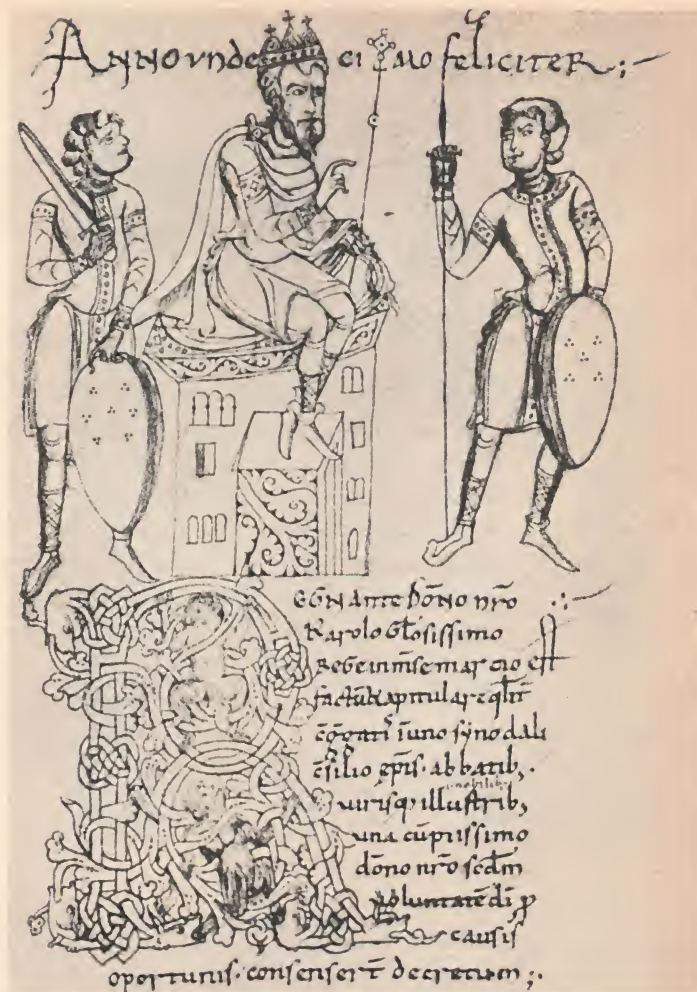 ANNO VNDECIMO FELICITER :
REGNANTE DOÑO NŔO
KAROLO GLOSISSIMO
REGE IN M̄SE MARCIO
factū kapitulare qlit̄
c̄ggati īuno synodali
c̄silio ep̄is · abbatib; ·
nobilib;
virisq; illustrib;
una cū piissimo
dōno nr̄o scdm̄
voluntatē dī p
causis
oportunis · consenser̄t decretum ;